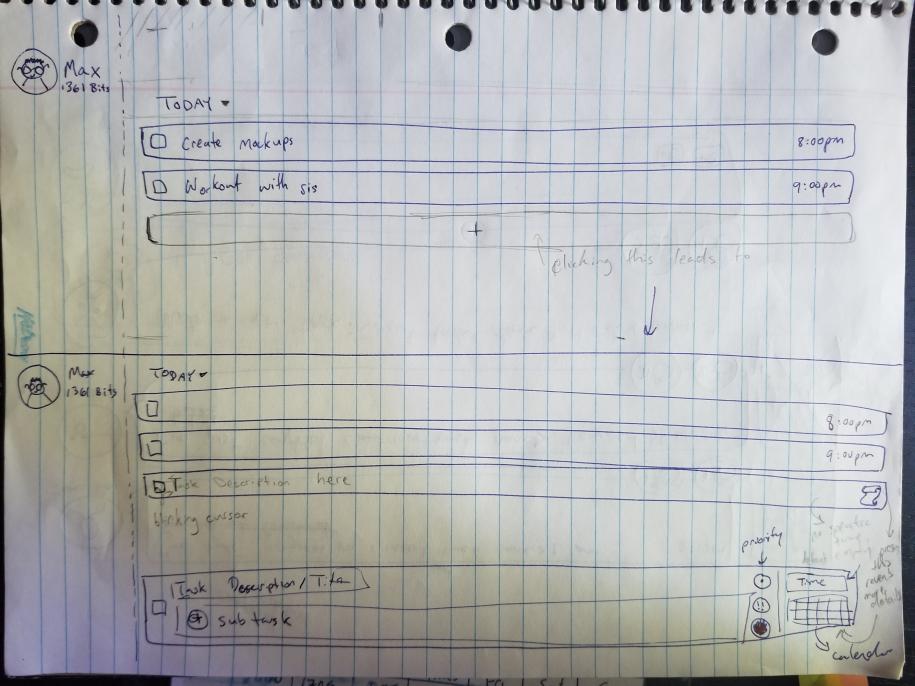 Max
1361 Bits
TODAY
Create Mockups 8:00pm
Workout with sis 9:00pm
+
clicking this leads to
Max
1361 Bits
TODAY
8:00pm
9:00pm
Task Description here
blinking cursor
priority
Task Description/Title
Time
subtask
calendar